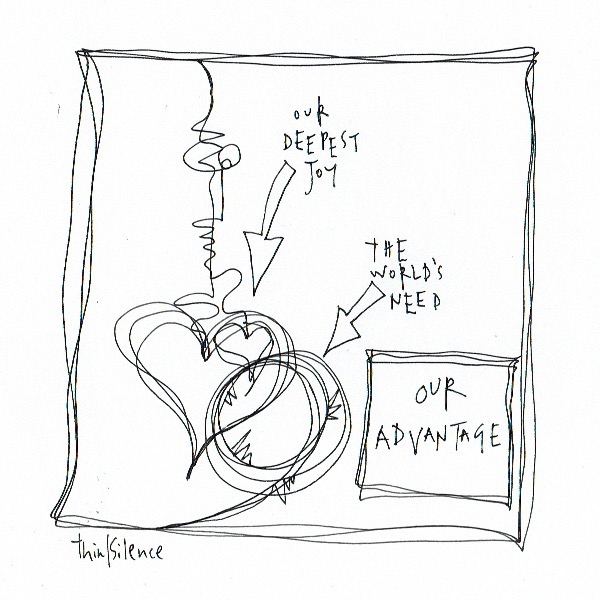 OUR
DEEPEST
JOY
THE
WORLD'S
NEED
OUR
ADVANTAGE
thin/silence